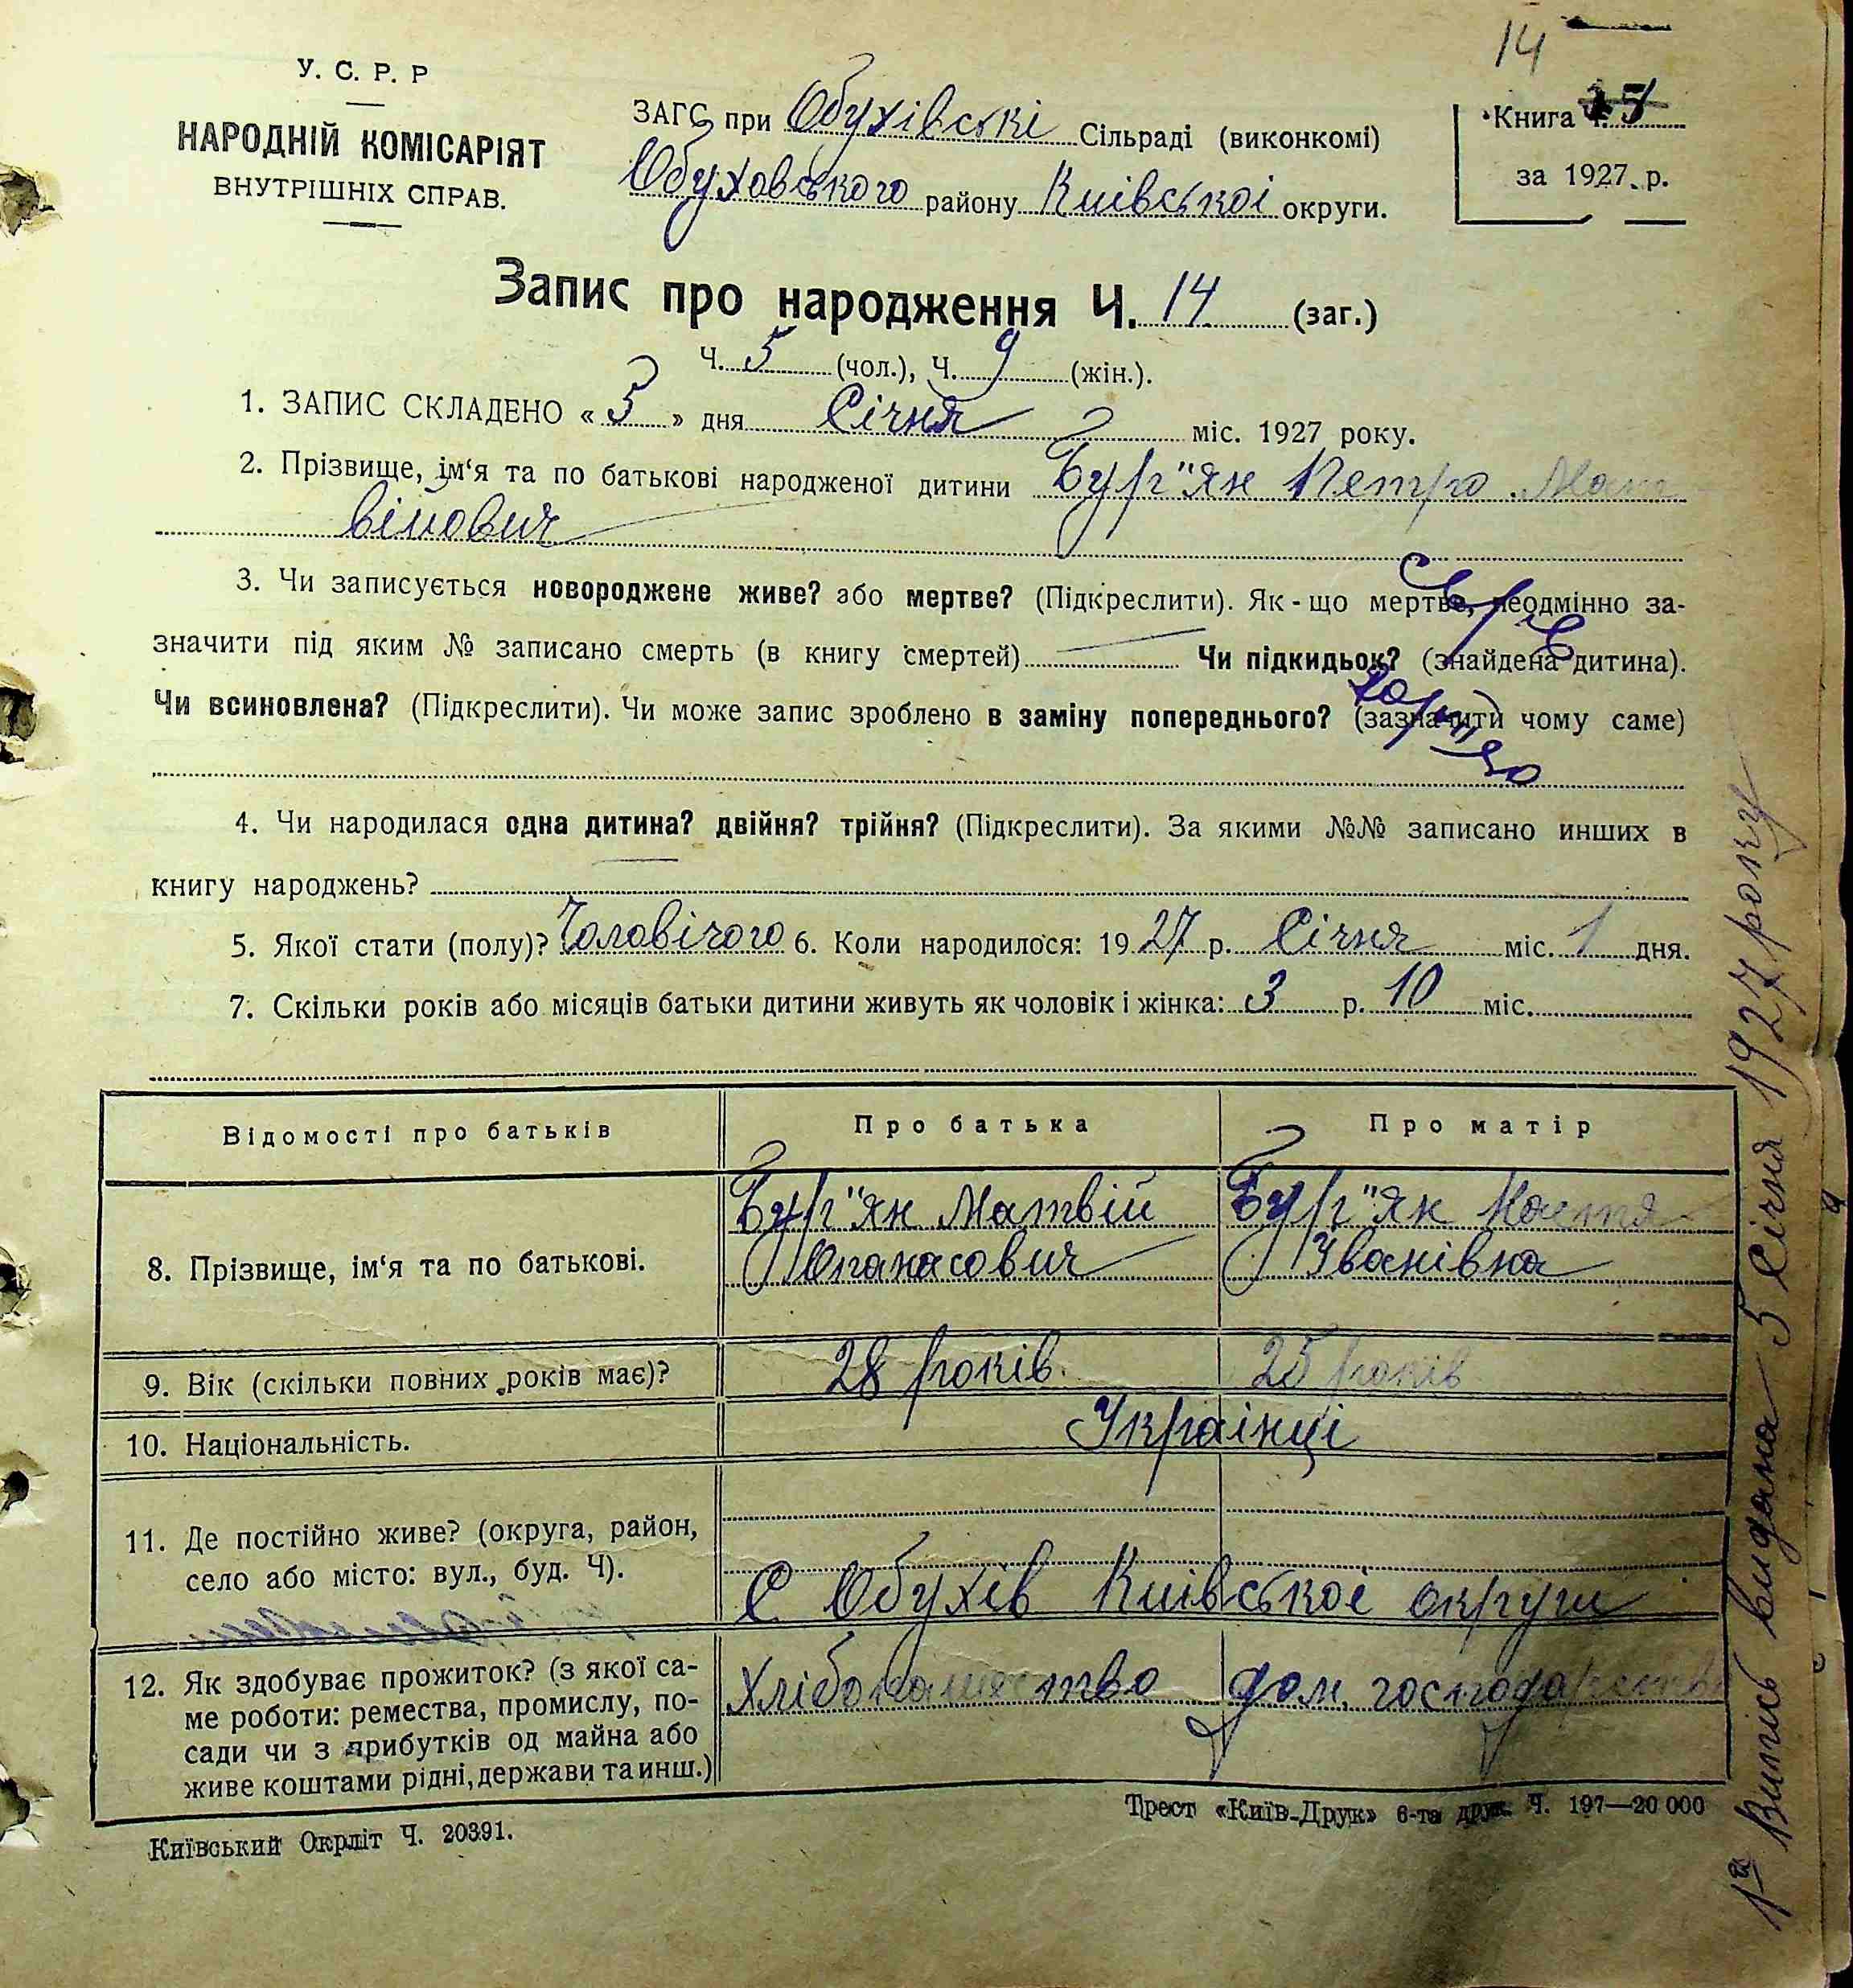 14
У. С. Р. Р
НАРОДНІЙ КОМІСАРІЯТ
ВНУТРІШНІХ СПРАВ.
ЗАГС при Обухівські Сільраді (виконкомі)
Обуховського району Київської округи.
Книга Ч.
за 1927 р.
Запис про народження Ч. 14 (заг.)
Ч. 5 (чол.), Ч. 9 (жін.).
1. ЗАПИС СКЛАДЕНО « 5 » дня Січня міс. 1927 року.
2. Прізвище, ім‘я та по батькові народженої дитини Бур"ян Петро Мат
війович
3. Чи записується новороджене живе? або мертве? (Підкреслити). Як-що мертве, неодмінно за-
значити під яким № записано смерть (в книгу смертей) Чи підкидьок? (знайдена дитина).
Чи всиновлена? (Підкреслити). Чи може запис зроблено в заміну попереднього? (зазначити чому саме)
4. Чи народилася одна дитина? двійня? трійня? (Підкреслити). За якими №№ записано инших в
книгу народжень?
5. Якої стати (полу)? Чоловічого 6. Коли народилося: 1927 р. Січня міс. 1 дня.
7. Скільки років або місяців батьки дитини живуть як чоловік і жінка: 3 р. 10 міс.
Відомості про батьків Про батька Про матір
8. Прізвище, ім‘я та по батькові. Бур"ян Матвій Бур"ян Настя
Опанасович Іванівна
9. Вік (скільки повних років має)? 28 років 25 років
10. Національність. Українці
11. Де постійно живе? (округа, район,
село або місто: вул., буд. Ч). С Обухів Київської округи
12. Як здобуває прожиток? (з якої са- Хлібопашество дом. господарство
ме роботи: ремества, промислу, по-
сади чи з прибутків од майна або
живе коштами рідні, держави та инш.)
Київський Окрліт Ч. 20391.
Трест «Київ-Друк» 6-та друк. Ч. 197—20 000
1ª Випись видана 5 Січня 1927 року